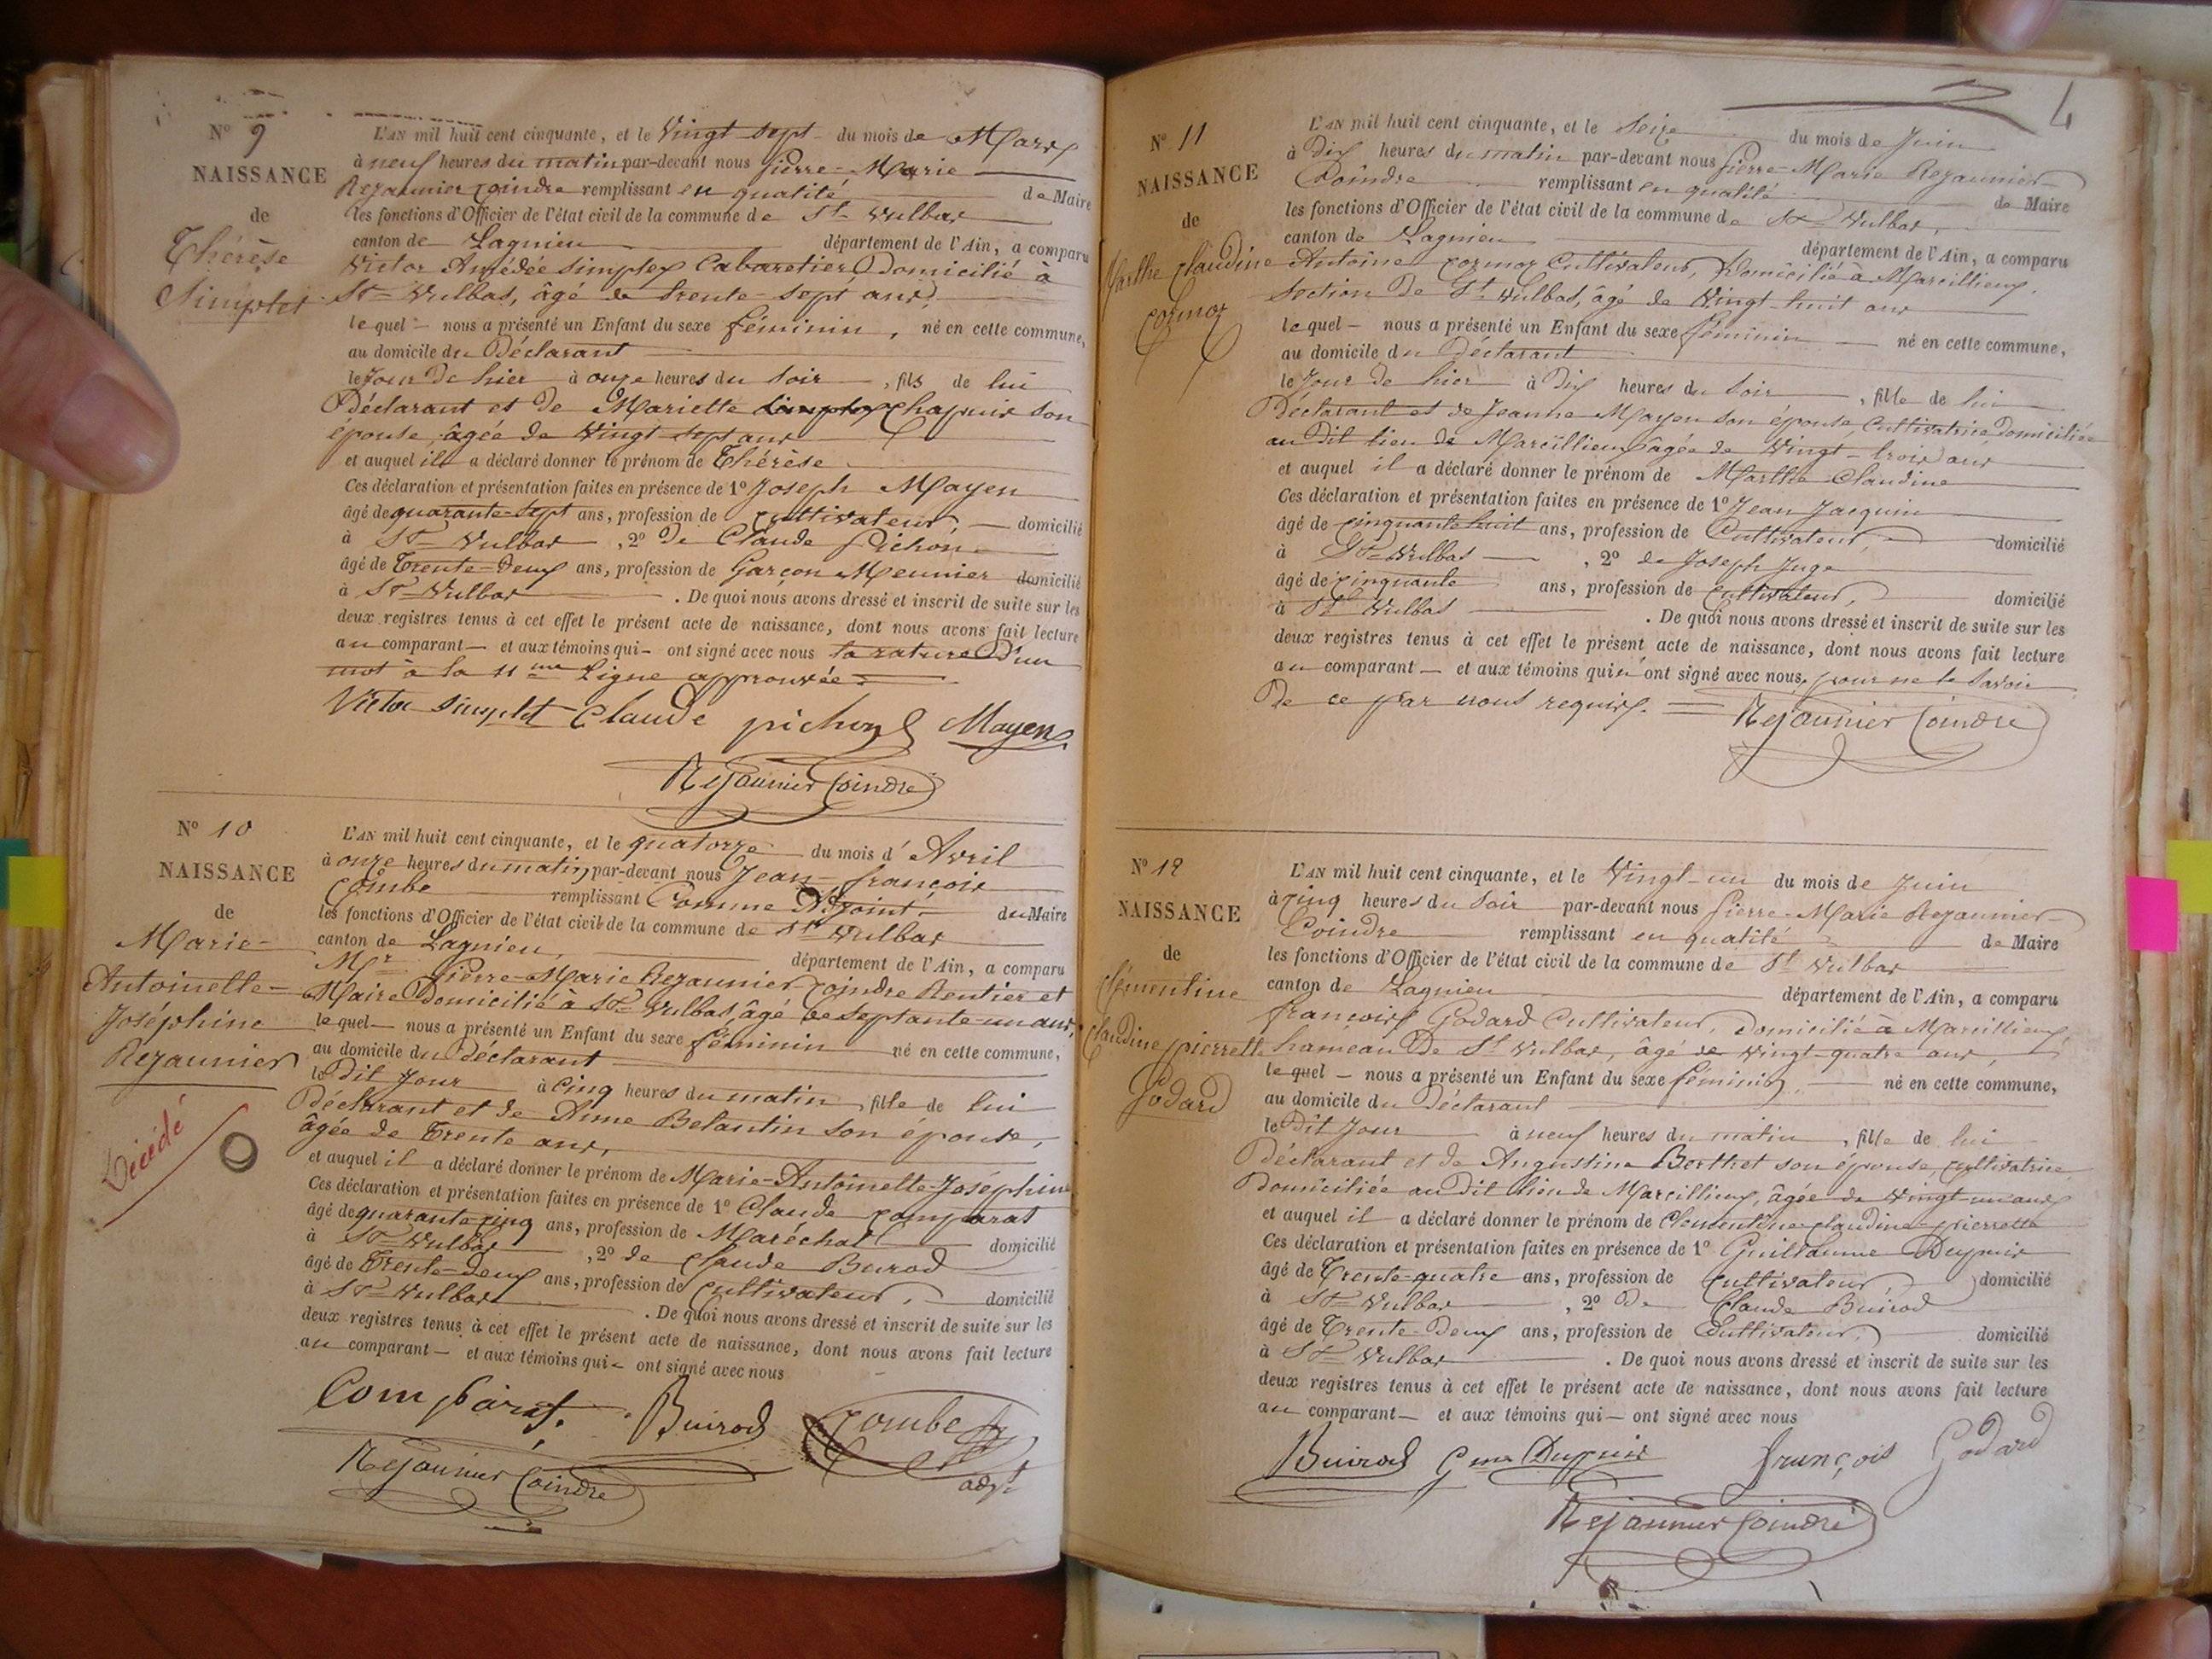 Nº 9
NAISSANCE
de
Thérèse
Simplet
L'AN mil huit cent cinquante, et le Vingt sept du mois de Mars
à neuf heures du matin par-devant nous Pierre-Marie
Rejaunier Coindre remplissant en qualité de Maire
les fonctions d'Officier de l'état civil de la commune de St Vulbas
canton de Lagnieu département de l'Ain, a comparu
Victor Amédée Simplex Cabaretier Domicilié à
St Vulbas, âgé de trente-sept ans,
lequel nous a présenté un Enfant du sexe féminin, né en cette commune,
au domicile du Déclarant
le Jour De hier à onze heures du Soir, fils de lui
Déclarant et de Mariette Chapuis son
épouse, âgée de Vingt sept ans
et auquel il a déclaré donner le prénom de Thérèse
Ces déclaration et présentation faites en présence de 1º Joseph Mayen
âgé de quarante-sept ans, profession de Cultivateur, domicilié
à St Vulbas, 2º de Claude Pichon
âgé de Trente-Deux ans, profession de Garçon Meunier domicilié
à St Vulbas. De quoi nous avons dressé et inscrit de suite sur les
deux registres tenus à cet effet le présent acte de naissance, dont nous avons fait lecture
au comparant et aux témoins qui ont signé avec nous la rature D'un
mot à la 11me Ligne approuvée.
Victor Simplet Claude pichon Mayen
Rejaunier Coindre
Nº 10
NAISSANCE
de
Marie-
Antoinette-
Joséphine
Rejaunier
Décédé
L'AN mil huit cent cinquante, et le quatorze du mois d'Avril
à onze heures du matin, par-devant nous Jean-françois
Combe remplissant Comme Adjoint du Maire
les fonctions d'Officier de l'état civil de la commune de St Vulbas
canton de Lagnieu, département de l'Ain, a comparu
Mr Pierre-Marie Rejaunier Coindre Rentier et
Maire Domicilié à St Vulbas, âgé de Septante-un ans,
lequel nous a présenté un Enfant du sexe féminin né en cette commune,
au domicile du Déclarant
le Dit Jour à Cinq heures du matin, fille de lui
Déclarant et de Anne Belantin son épouse,
âgée de Trente ans,
et auquel il a déclaré donner le prénom de Marie-Antoinette-Joséphine
Ces déclaration et présentation faites en présence de 1º Claude Comparat
âgé de quarante cinq ans, profession de Maréchal domicilié
à St Vulbas, 2º de Claude Buirod
âgé de Trente-Deux ans, profession de Cultivateur, domicilié
à St Vulbas. De quoi nous avons dressé et inscrit de suite sur les
deux registres tenus à cet effet le présent acte de naissance, dont nous avons fait lecture
au comparant et aux témoins qui ont signé avec nous
Comparat. Buirod Combe
adjt
Rejaunier Coindre
4
Nº 11
NAISSANCE
de
Marthe Claudine
Cormoz
L'AN mil huit cent cinquante, et le Seize du mois de Juin
à Dix heures du matin par-devant nous Pierre-Marie Rejaunier
Coindre remplissant en qualité de Maire
les fonctions d'Officier de l'état civil de la commune de St Vulbas,
canton de Lagnieu département de l'Ain, a comparu
Antoine Cormoz Cultivateur, Domicilié à Marcillieux
Section De St Vulbas, âgé de Vingt-huit ans
lequel nous a présenté un Enfant du sexe féminin né en cette commune,
au domicile du Déclarant
le Jour de hier à Dix heures du Soir, fille de lui
Déclarant et de Jeanne Mayen son épouse, Cultivatrice, Domiciliée
au Dit lieu de Marcillieux, âgée de Vingt-trois ans
et auquel il a déclaré donner le prénom de Marthe Claudine
Ces déclaration et présentation faites en présence de 1º Jean Jacquin
âgé de Cinquante huit ans, profession de Cultivateur, domicilié
à St Vulbas, 2º de Joseph Juge
âgé de Cinquante ans, profession de Cultivateur, domicilié
à St Vulbas. De quoi nous avons dressé et inscrit de suite sur les
deux registres tenus à cet effet le présent acte de naissance, dont nous avons fait lecture
au comparant et aux témoins qui n'ont signé avec nous, pour ne le Savoir
De ce par nous requis. Rejaunier Coindre
Nº 12
NAISSANCE
de
Clémentine
Claudine pierrette
Godard
L'AN mil huit cent cinquante, et le Vingt-un du mois de Juin
à Cinq heures du Soir par-devant nous Pierre-Marie Rejaunier
Coindre remplissant en qualité de Maire
les fonctions d'Officier de l'état civil de la commune de St Vulbas
canton de Lagnieu département de l'Ain, a comparu
françois Godard Cultivateur, Domicilié à Marcillieux
hameau De St Vulbas, âgé de Vingt-quatre ans,
lequel nous a présenté un Enfant du sexe féminin, né en cette commune,
au domicile du Déclarant
le Dit Jour à neuf heures du matin, fille de lui
Déclarant et de Augustine Berthet son épouse, Cultivatrice
Domiciliée au Dit lieu de Marcillieux, âgée de Vingt-un ans
et auquel il a déclaré donner le prénom de Clementine-Claudine-pierrette
Ces déclaration et présentation faites en présence de 1º Guillaume Dupuis
âgé de Trente-quatre ans, profession de Cultivateur, domicilié
à St Vulbas, 2º De Claude Buirod
âgé de Trente-Deux ans, profession de Cultivateur, domicilié
à St Vulbas. De quoi nous avons dressé et inscrit de suite sur les
deux registres tenus à cet effet le présent acte de naissance, dont nous avons fait lecture
au comparant et aux témoins qui ont signé avec nous
Buirod Gme Dupuis françois Godard
Rejaunier Coindre